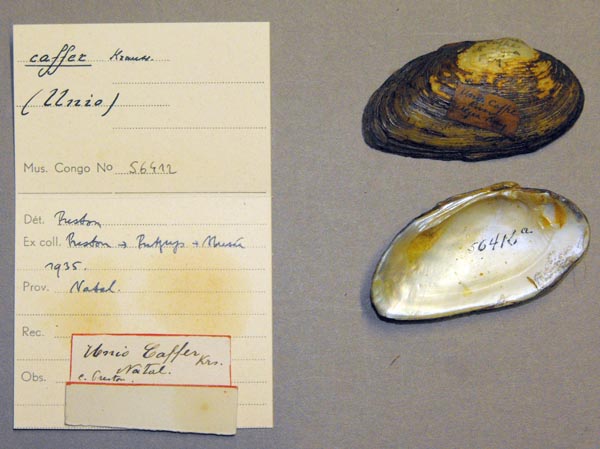 caffer Krauss.
(Unio)
Mus. Congo No 56412
Dét. Preston
Ex coll. Preston → → Musée
1935.
Prov. Natal.
Rec.
Obs.
Unio Caffer Krs.
Natal.
c. Preston.
Unio Caffer
5641 a